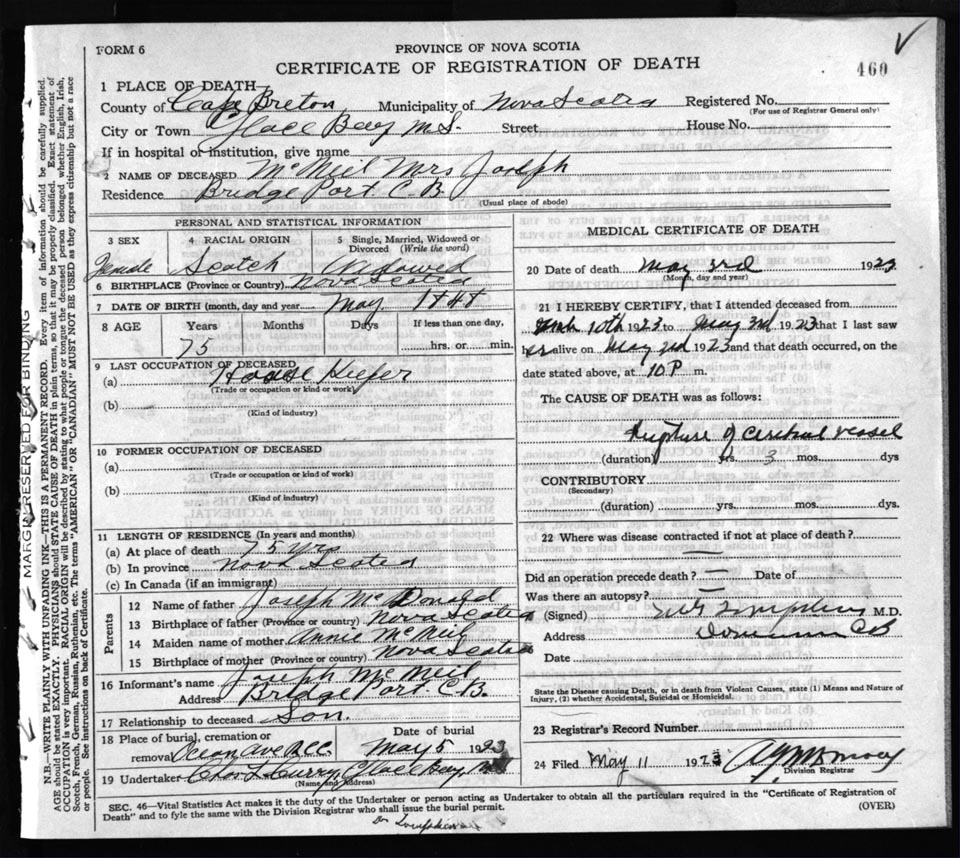 FORM 6
PROVINCE OF NOVA SCOTIA
CERTIFICATE OF REGISTRATION OF DEATH
460
1 PLACE OF DEATH
County of Cape Breton Municipality of Nova Scotia Registered No.
(For use of Registrar General only)
City or Town Glace Bay N.S. Street House No.
If in hospital or institution, give name
2 NAME OF DECEASED McNeil Mrs Joseph
Residence Bridge Port C.B.
(Usual place of abode)
PERSONAL AND STATISTICAL INFORMATION
3 SEX 4 RACIAL ORIGIN 5 Single, Married, Widowed or Divorced (Write the word)
Female Scotch Widowed
6 BIRTHPLACE (Province or Country) Nova Scotia
7 DATE OF BIRTH (month, day and year) May 1848
8 AGE Years Months Days If less than one day,
75 hrs. or min.
9 LAST OCCUPATION OF DECEASED
(a) House Keeper
(Trade or occupation or kind of work)
(b)
(Kind of industry)
10 FORMER OCCUPATION OF DECEASED
(a)
(Trade or occupation or kind of work)
(b)
(Kind of industry)
11 LENGTH OF RESIDENCE (In years and months)
(a) At place of death 75 yrs
(b) In province Nova Scotia
(c) In Canada (if an immigrant)
Parents
12 Name of father Joseph McDonald
13 Birthplace of father (Province or country) Nova Scotia
14 Maiden name of mother Annie McNeil
15 Birthplace of mother (Province or country) Nova Scotia
16 Informant's name Joseph McNeil
Address Bridge Port C.B.
17 Relationship to deceased Son.
18 Place of burial, cremation or removal Date of burial
Ocean Ave May 5 1923
19 Undertaker Chas L Curry, Glace Bay, N.S.
(Name and Address)
MEDICAL CERTIFICATE OF DEATH
20 Date of death May 3rd 1923
(Month, day and year)
21 I HEREBY CERTIFY, that I attended deceased from
10th 1923 to May 3rd 1923 that I last saw
her alive on May 2nd 1923 and that death occurred, on the
date stated above, at 10 P m.
The CAUSE OF DEATH was as follows:
Rupture of cerebral vessel
(duration) yrs. 3 mos. dys
CONTRIBUTORY
(Secondary)
(duration) yrs. mos. dys
22 Where was disease contracted if not at place of death?
Did an operation precede death? — Date of
Was there an autopsy? —
(Signed) M.D.
Address Dominion C.B
Date
State the Disease causing Death, or in death from Violent Causes, state (1) Means and Nature of
Injury, (2) whether Accidental, Suicidal or Homicidal.
23 Registrar's Record Number
24 Filed May 11 1923
Division Registrar
SEC. 46—Vital Statistics Act makes it the duty of the Undertaker or person acting as Undertaker to obtain all the particulars required in the "Certificate of Registration of
Death" and to fyle the same with the Division Registrar who shall issue the burial permit.
(OVER)
MARGIN RESERVED FOR BINDING
N.B.—WRITE PLAINLY WITH UNFADING INK—THIS IS A PERMANENT RECORD. Every item of information should be carefully supplied.
AGE should be stated EXACTLY. PHYSICIANS should STATE CAUSE OF DEATH in plain terms, so that it may be properly classified. Exact statement of
OCCUPATION is very important. RACIAL ORIGIN will be described by stating to what people or tongue the deceased person belonged, whether English, Irish,
Scotch, French, German, Russian, Ruthenian, etc. The terms "AMERICAN" or "CANADIAN" MUST NOT BE USED as they express citizenship but not a race
or people. See instructions on back of Certificate.